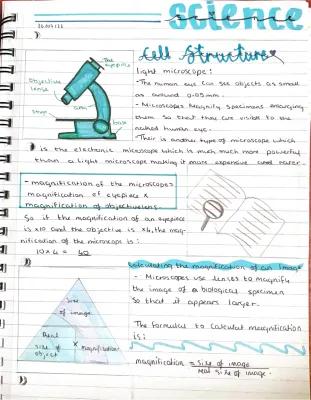 science
Cell Structure
The eyepiece
Objective lense
arm
stage
base
light microscope:
- The human eye can see objects as small
as around 0.05mm.
- Microscopes Magnify specimens enlarging
them so that they are visible to the
naked human eye.
- Their is another type of microscope which
is the electronic microscope which is much much more powerful
than a light microscope making it more expensive and rarer.
- magnification of the microscope=
magnification of eyepiece x
magnification of objective lens.
So if the magnification of an eyepiece
is x10 and the objective is x4, the mag-
nification of the microscope is:
10 x 4 = 40
Calculating the magnification of an Image
- Microscopes use lenses to magnify
the image of a biological specimen
so that it appears larger.
The formular to calculat magnification
is:
magnification = size of image
real size of image.
size
of image
Real
size of
object
x
magnification